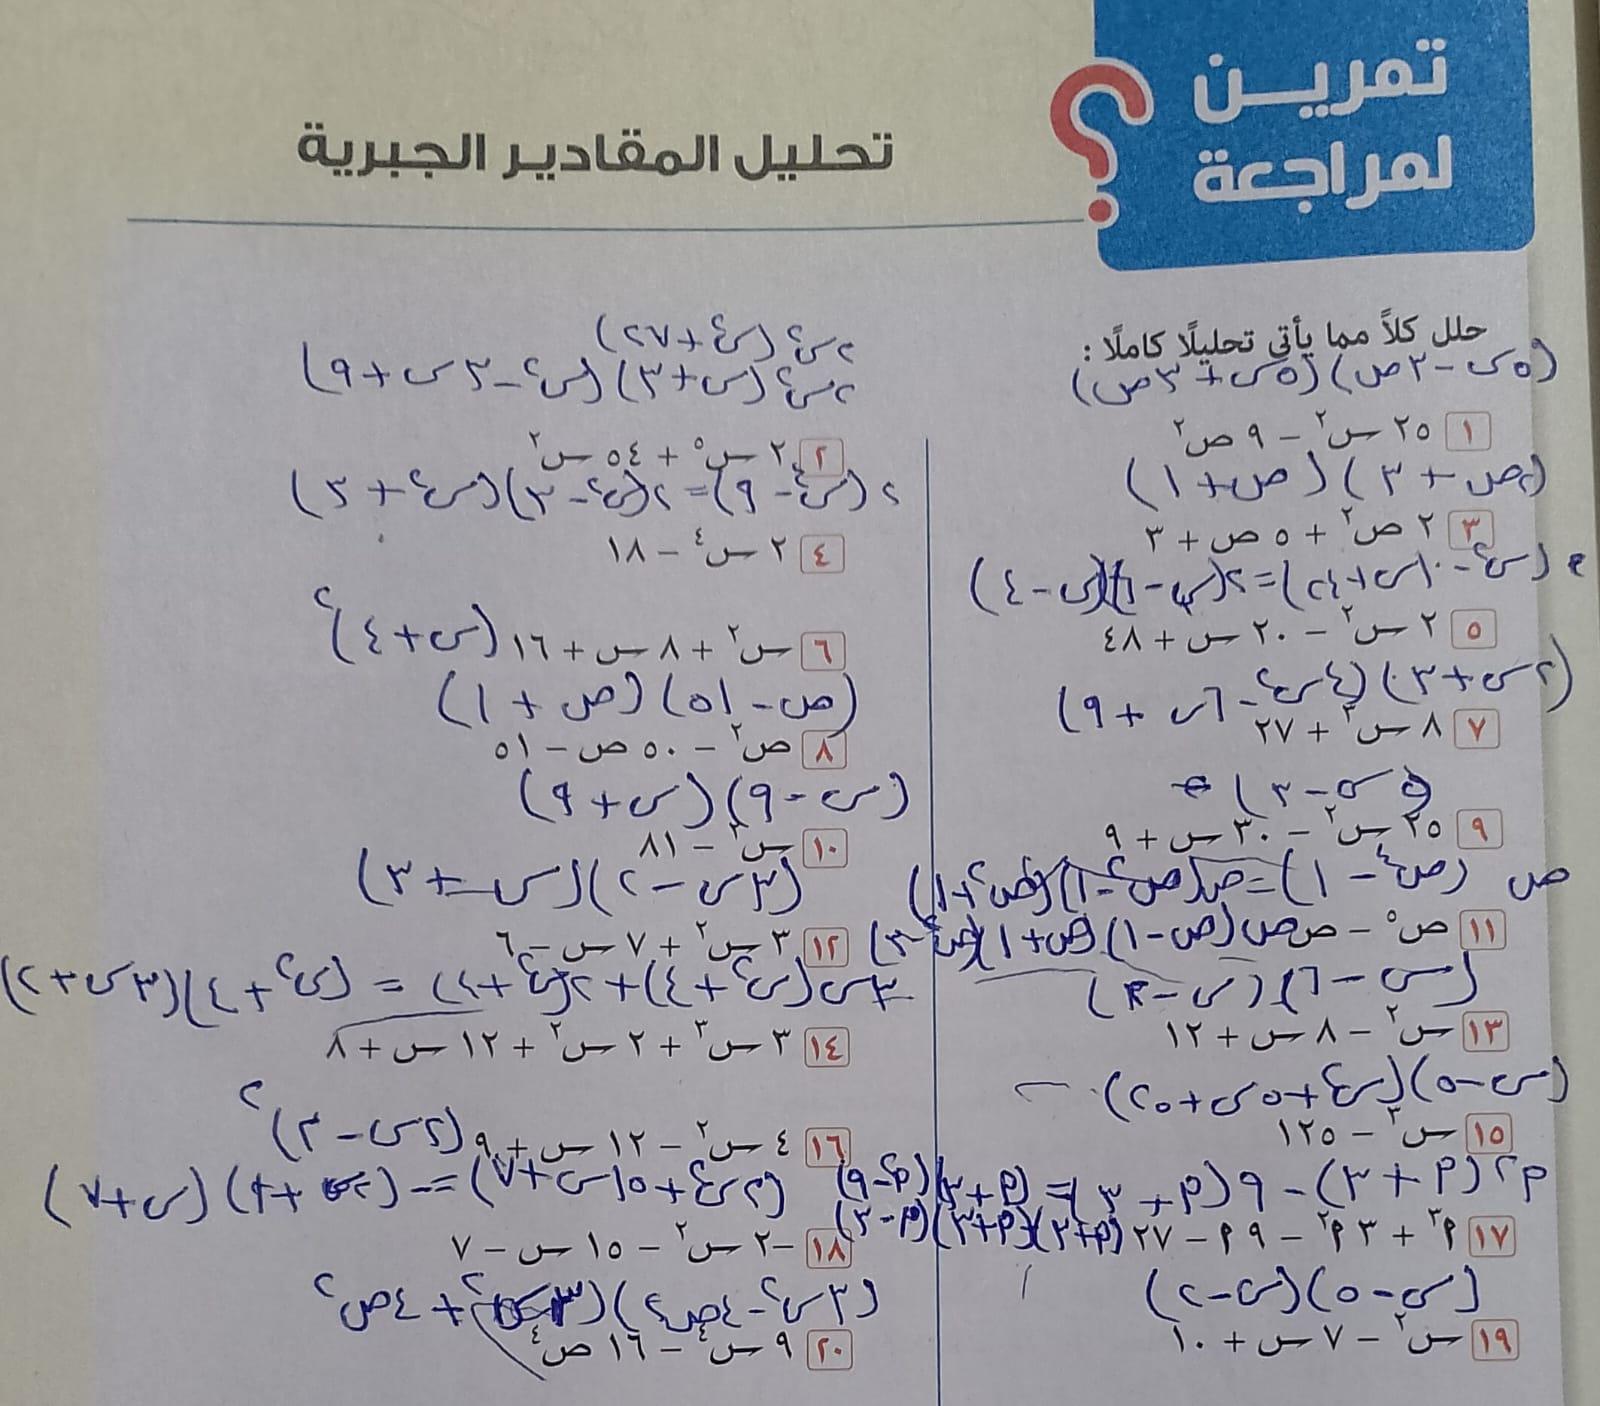 تمرين
لمراجعة
تحليل المقادير الجبرية
حلل كلاً مما يأتي تحليلًا كاملًا :
(٥س - ٣ص) (٥س + ٣ص)
١ ٢٥ س٢ - ٩ ص٢
(٢ص + ٣) (ص + ١)
٣ ٢ ص٢ + ٥ ص + ٣
٢(س٢ - ١٠س + ٢٤) = ٢(س - ٦)(س - ٤)
٥ ٢ س٢ - ٢٠ س + ٤٨
(٢س + ٣) (٤س٢ - ٦س + ٩)
٧ ٨ س٣ + ٢٧
(٥س - ٣)
٩ ٢٥ س٢ - ٣٠ س + ٩
ص (ص٤ - ١) = ص(ص٢ - ١)(ص٢ + ١)
١١ ص٥ - ص ص(ص - ١)(ص + ١)
(س - ٦)(س - ٢)
١٣ س٢ - ٨ س + ١٢
(س - ٥)(س٢ + ٥س + ٢٥)
١٥ س٣ - ١٢٥
م٢(م + ٣) - ٩(م + ٣) = (م + ٣)(م٢ - ٩)
١٧ م٣ + ٣ م٢ - ٩ م - ٢٧ (م + ٣)(م + ٣)(م - ٣)
(س - ٥)(س - ٢)
١٩ س٢ - ٧ س + ١٠
٢س٢ (س٣ + ٢٧)
٢س٢ (س + ٣)(س٢ - ٣س + ٩)
٢ ٢ س٥ + ٥٤ س٢
٢ (س٤ - ٩) = ٢(س٢ - ٣)(س٢ + ٣)
٤ ٢ س٤ - ١٨
٦ س٢ + ٨ س + ١٦ (س + ٤)٢
(ص - ٥١) (ص + ١)
٨ ص٢ - ٥٠ ص - ٥١
(س - ٩)(س + ٩)
١٠ س٢ - ٨١
(٣س - ٢)(س + ٣)
١٢ ٣ س٢ + ٧ س - ٦
٣س(س٢ + ٤) + ٢(س٢ + ٤) = (س٢ + ٤)(٣س + ٢)
١٤ ٣ س٣ + ٢ س٢ + ١٢ س + ٨
١٦ ٤ س٢ - ١٢ س + ٩ (٢س - ٣)٢
(٢س٢ + ١٥س + ٧) = -(٢س + ١)(س + ٧)
١٨ -٢ س٢ - ١٥ س - ٧
(٣س٢ - ٤ص٢)(٣س٢ + ٤ص٢
٢٠ ٩ س٤ - ١٦ ص٤